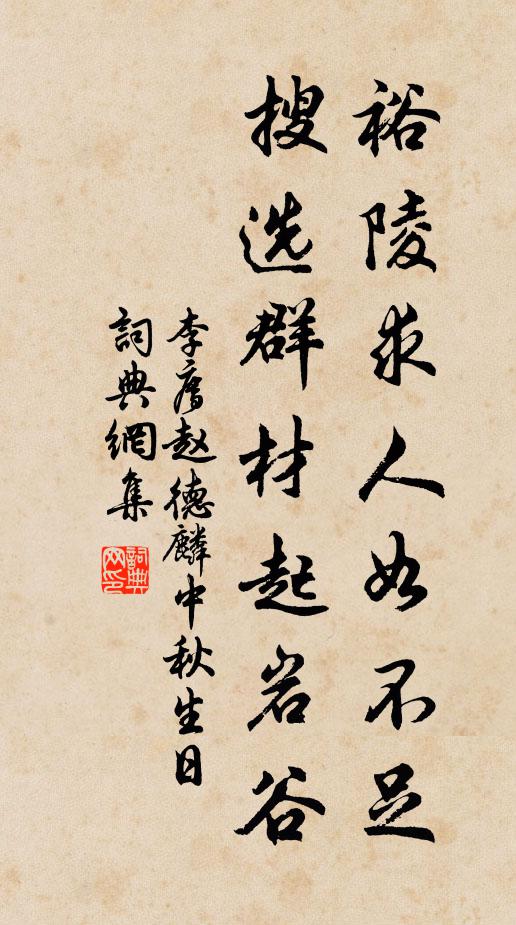 裕陵求人如不足
搜选群材起岩谷
李廌赵德麟中秋生日
詞典網集
詞典网印